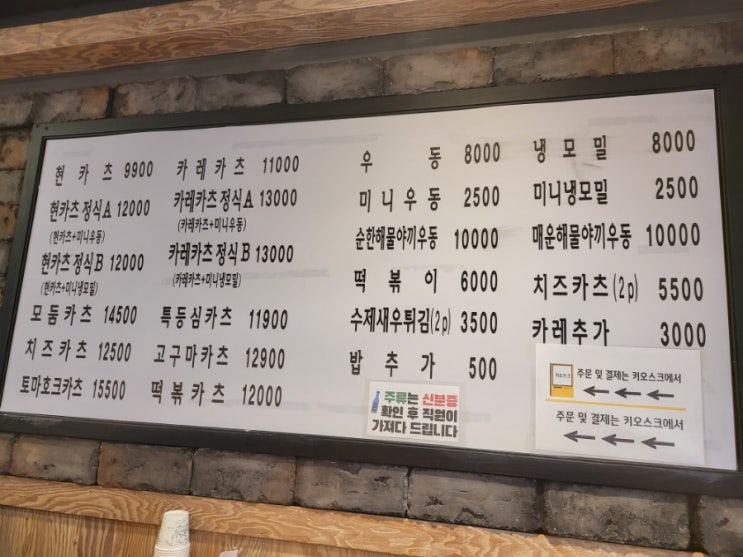 현 카 츠 9900
현카츠 정식A 12000
(현카츠+미니우동)
현카츠 정식B 12000
(현카츠+미니냉모밀)
모 둠 카 츠 14500
치 즈 카 츠 12500
토마호크카츠 15500
카 레 카 츠 11000
카레카츠 정식A 13000
(카레카츠+미니우동)
카레카츠 정식B 13000
(카레카츠+미니냉모밀)
특등심카츠 11900
고구마카츠 12900
떡볶카츠 12000
우 동 8000
미 니 우 동 2500
순한해물야끼우동 10000
떡 볶 이 6000
수제새우튀김(2p) 3500
밥 추 가 500
냉 모 밀 8000
미니냉모밀 2500
매운해물야끼우동 10000
치즈카츠(2p) 5500
카레추가 3000
주류는 신분증
확인 후 직원이
가져다 드립니다
주문 및 결제는 키오스크에서
주문 및 결제는 키오스크에서